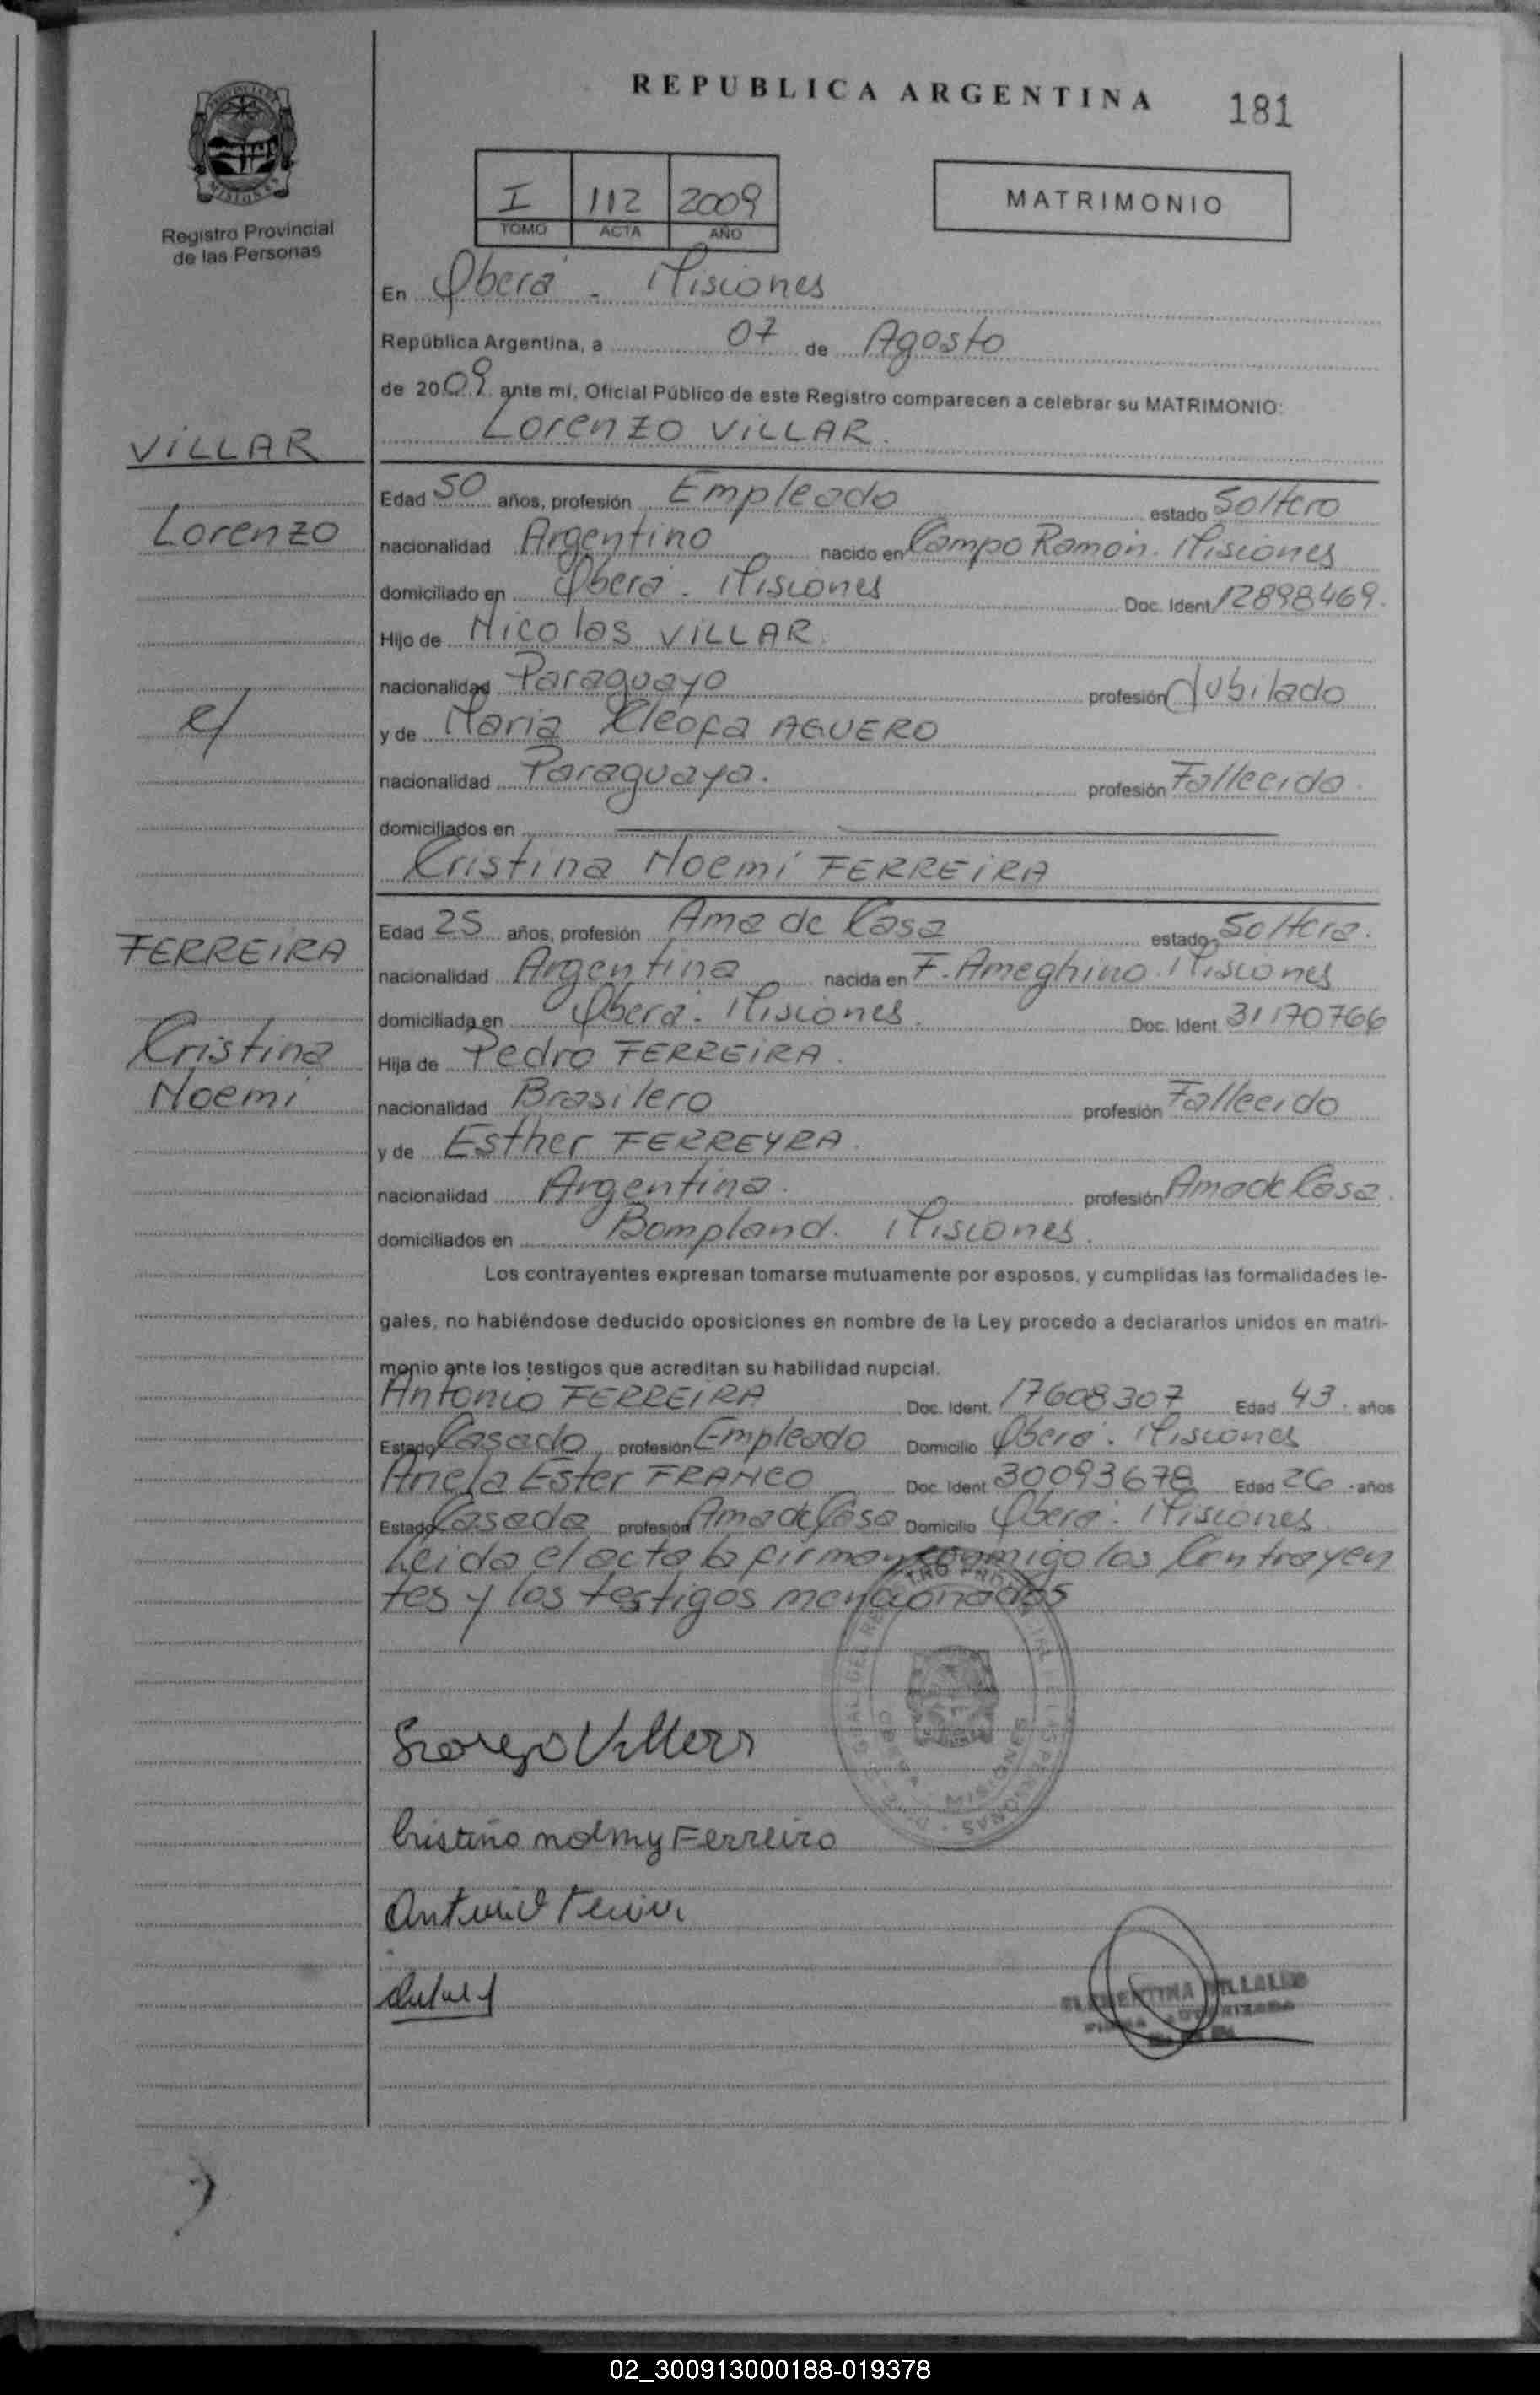 REPUBLICA ARGENTINA
181
Registro Provincial
de las Personas
I 112 2009
TOMO ACTA AÑO
MATRIMONIO
En Oberá - Misiones
República Argentina, a 07 de Agosto
de 2009 ante mí, Oficial Público de este Registro comparecen a celebrar su MATRIMONIO:
Lorenzo VILLAR.
VILLAR
Lorenzo
c/
FERREIRA
Cristina
Noemi
Edad 50 años, profesión Empleado estado Soltero
nacionalidad Argentino nacido en Campo Ramón. Misiones
domiciliado en Oberá. Misiones Doc. Ident. 12898469.
Hijo de Nicolas VILLAR.
nacionalidad Paraguayo profesión Jubilado
y de Maria Cleofa AGUERO
nacionalidad Paraguaya. profesión Fallecida.
domiciliados en
Cristina Noemí FERREIRA
Edad 25 años, profesión Ama de Casa estado Soltera.
nacionalidad Argentina nacida en F. Ameghino. Misiones
domiciliada en Oberá. Misiones. Doc. Ident. 31170766
Hija de Pedro FERREIRA.
nacionalidad Brasilero profesión Fallecido
y de Esther FERREYRA.
nacionalidad Argentina. profesión Ama de Casa.
domiciliados en Bompland. Misiones.
Los contrayentes expresan tomarse mutuamente por esposos, y cumplidas las formalidades le-
gales, no habiéndose deducido oposiciones en nombre de la Ley procedo a declararlos unidos en matri-
monio ante los testigos que acreditan su habilidad nupcial.
Antonio FERREIRA Doc. Ident. 17608307 Edad 43. años
Estado Casado profesión Empleado Domicilio Oberá. Misiones
Ester FRANCO Doc. Ident. 30093678 Edad 26 años
Estado Casada profesión Ama de Casa Domicilio Oberá. Misiones.
Leida el acta la firman conmigo los Contrayen
tes y los testigos mencionados
Cristina noemy Ferreira
MISIONES
02_300913000188-019378